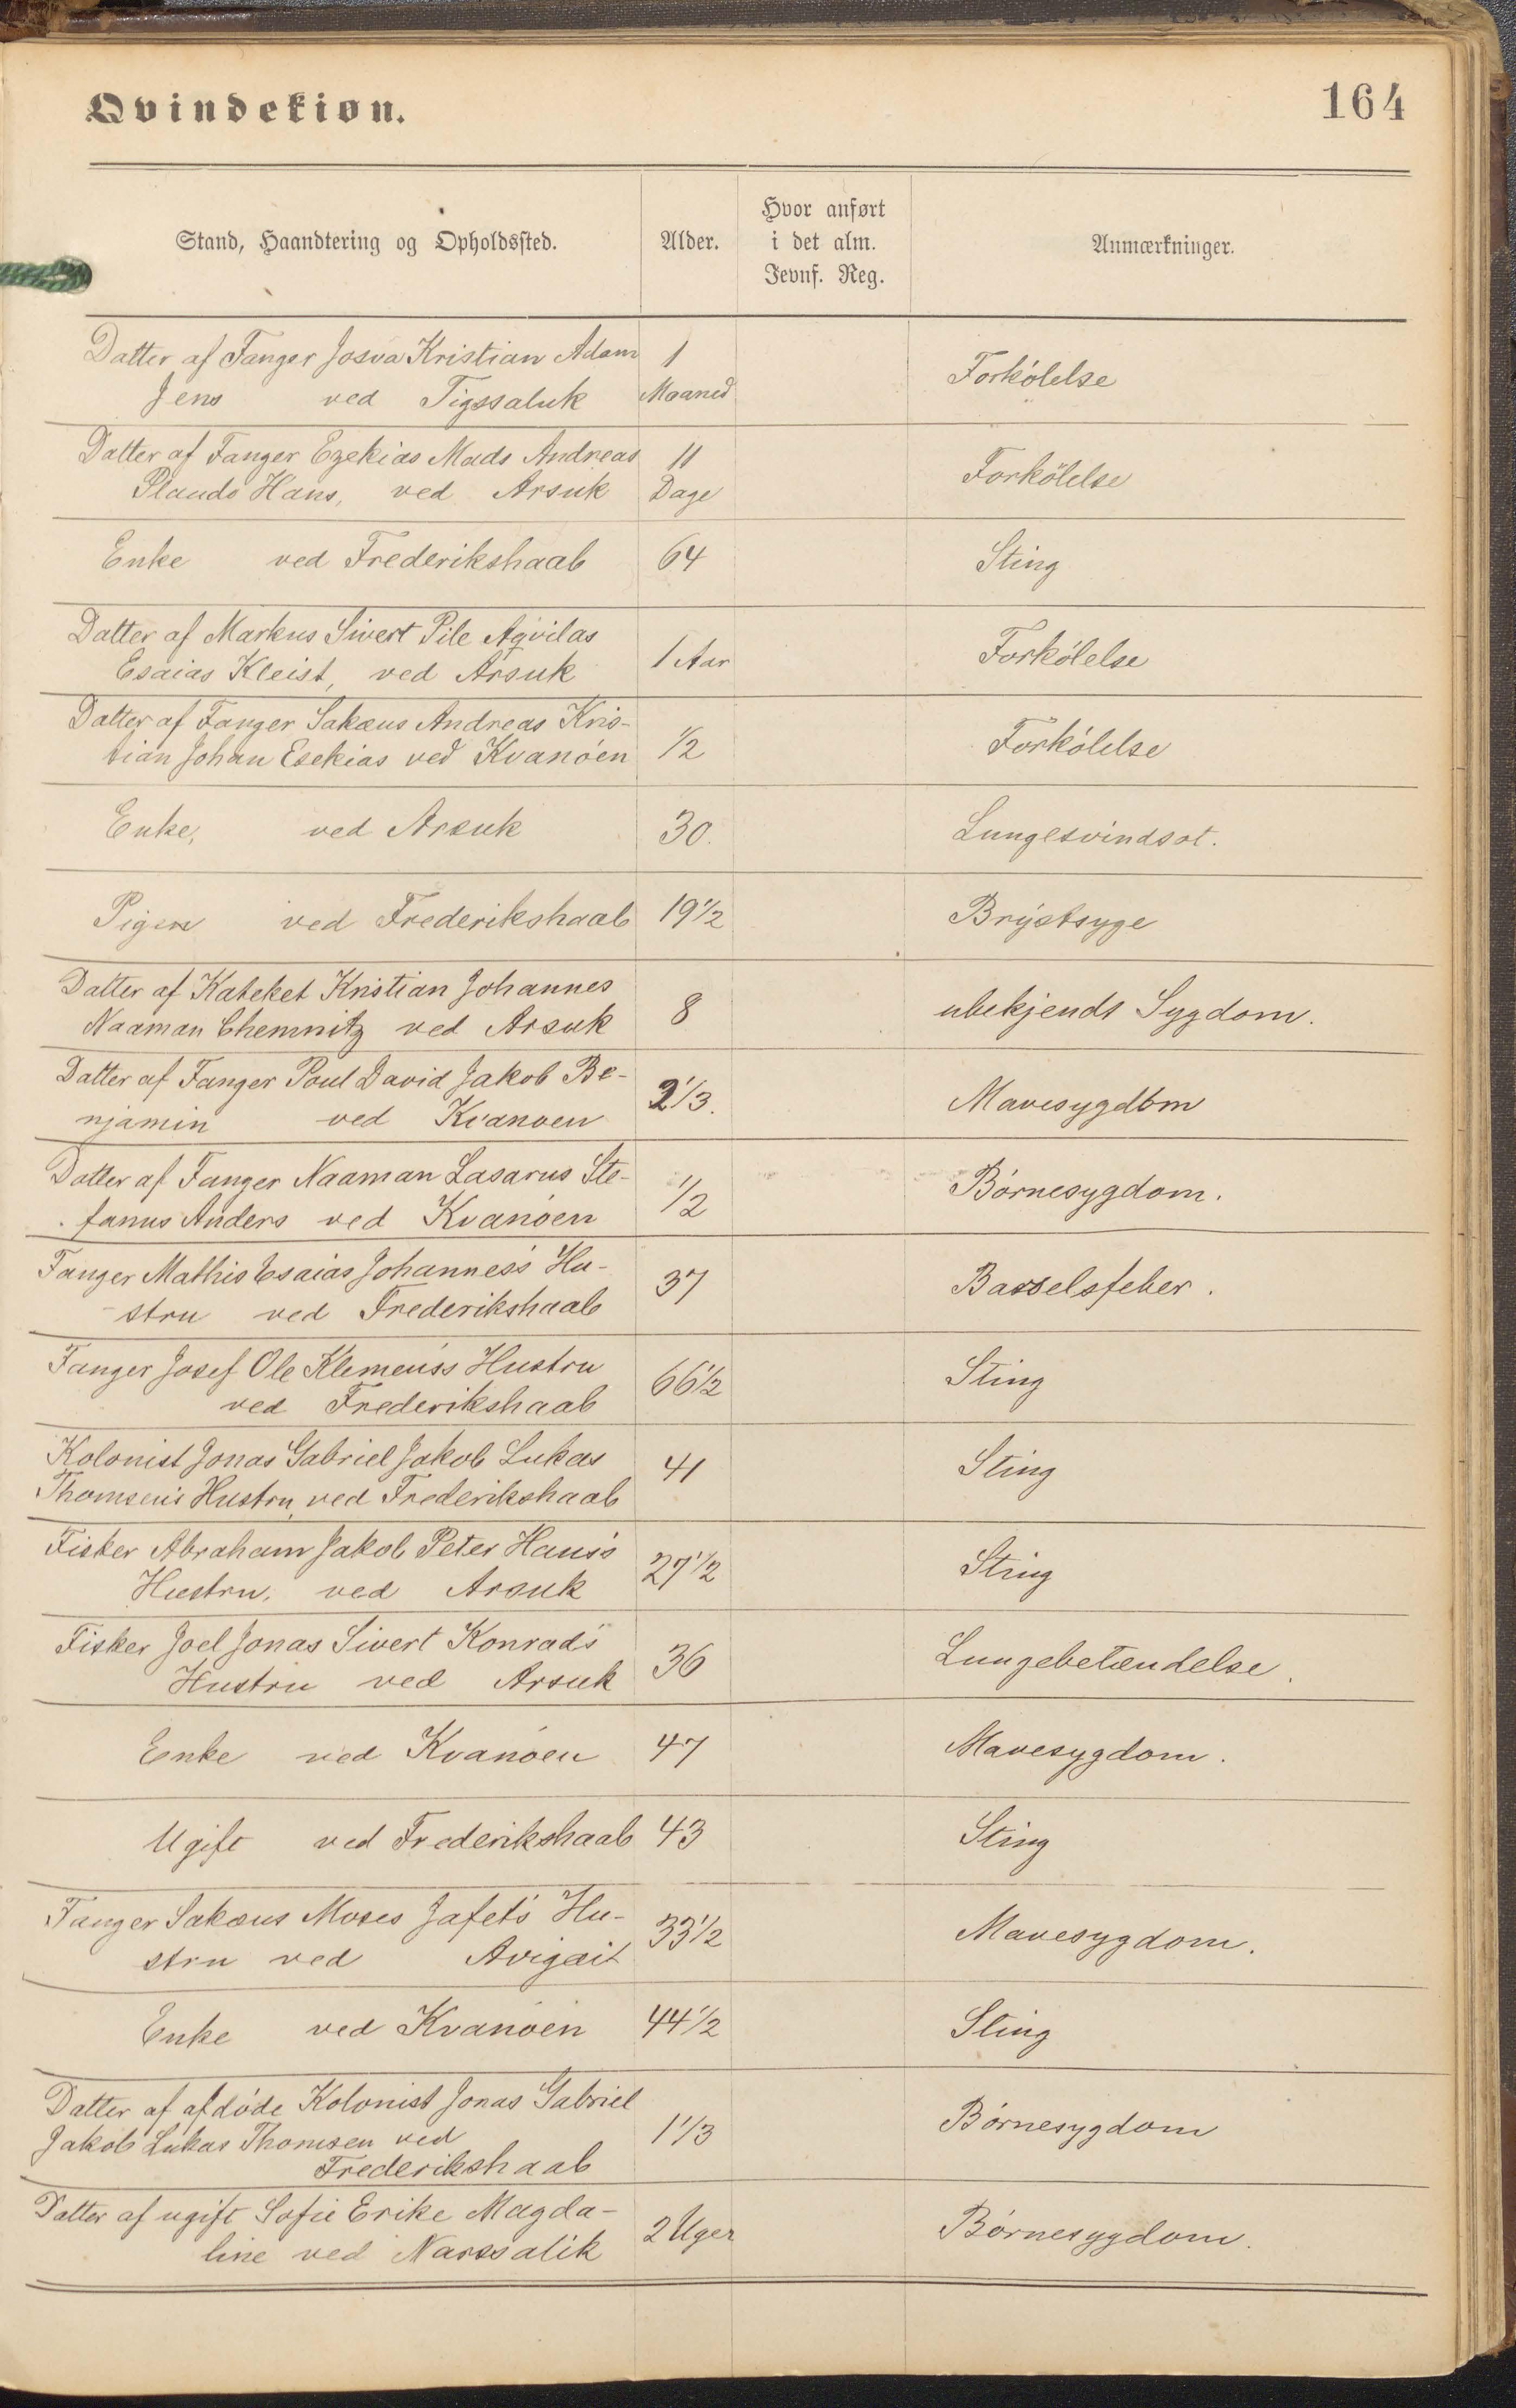 Qvindekiøn.
164
Stand, Haandtering og Opholdssted.
Alder.
Hvor anført
i det alm.
Jevnf. Reg.
Anmærkninger.
Datter af Fanger Josva Kristian Adam 1
Jens ved Tigssaluk Maaned
Forkölelse
Datter af Fanger Ezekias Mads Andreas 11
Hans, ved Arsuk Dage
Forkölelse
Enke ved Frederikshaab 64 Sting
Datter af Markus Sivert Pile Aqvilas
Esaias Kleist, ved Arsuk 1 Aar Forkölelse
Datter af Fanger Sakæus Andreas Kris-
tian Johan Esekias ved Kvanöen 1/2 Forkölelse
Enke, ved Arsuk 30. Lungesvindsot.
Pigen ved Frederikshaab 19 1/2 Brystsyge
Datter af Kateket Kristian Johannes
Naaman Chemnitz ved Arsuk 8 ubekjendt Sygdom.
Datter af Fanger Poul David Jakob Be-
njamin ved Kvanöen 2 1/3. Mavesygdom
Datter af Fanger Naaman Lasarus Ste-
fanus Anders ved Kvanöen 1/2 Börnesygdom.
Fanger Mathis Esaias Johannes's Hu-
stru ved Frederikshaab 37 Barselsfeber.
Fanger Josef Ole Klemens's Hustru
ved Frederikshaab 66 1/2 Sting
Kolonist Jonas Gabriel Jakob Lukas
Thomsen's Hustru, ved Frederikshaab 41 Sting
Fisker Abraham Jakob Peter Hans's
Hustru, ved Arsuk 27 1/2 Sting
Fisker Joel Jonas Sivert Konrad's
Hustru ved Arsuk 36 Lungebetændelse.
Enke ved Kvanöen 47 Mavesygdom.
Ugift ved Frederikshaab 43 Sting
Fanger Sakæus Moses Jafet's Hu-
stru ved Avigait 33 1/2 Mavesygdom.
Enke ved Kvanöen 44 1/2 Sting
Datter af afdöde Kolonist Jonas Gabriel
Jakob Lukas Thomsen ved 1 1/3 Börnesygdom
Frederikshaab
Datter af ugift Sofie Erike Magda-
line ved Narssalik 2 Uger Börnesygdom.